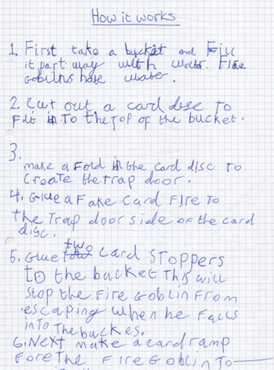 How it works
1. First take a bucket and Fill
it part way with water. Fire
Goblins hate water.
2. Cut out a card disc to
Fit into the top of the bucket.
3.
make a Fold in the card disc to
Create the trap door.
4. Glue a Fake Card Fire to
the trap door side of the card
disc.
5. Glue two card stoppers
to the bucket This will
stop the Fire Goblin From
escaping when he falls
into the buckes.
6. Next make a card ramp
Fore the Fire Goblin to